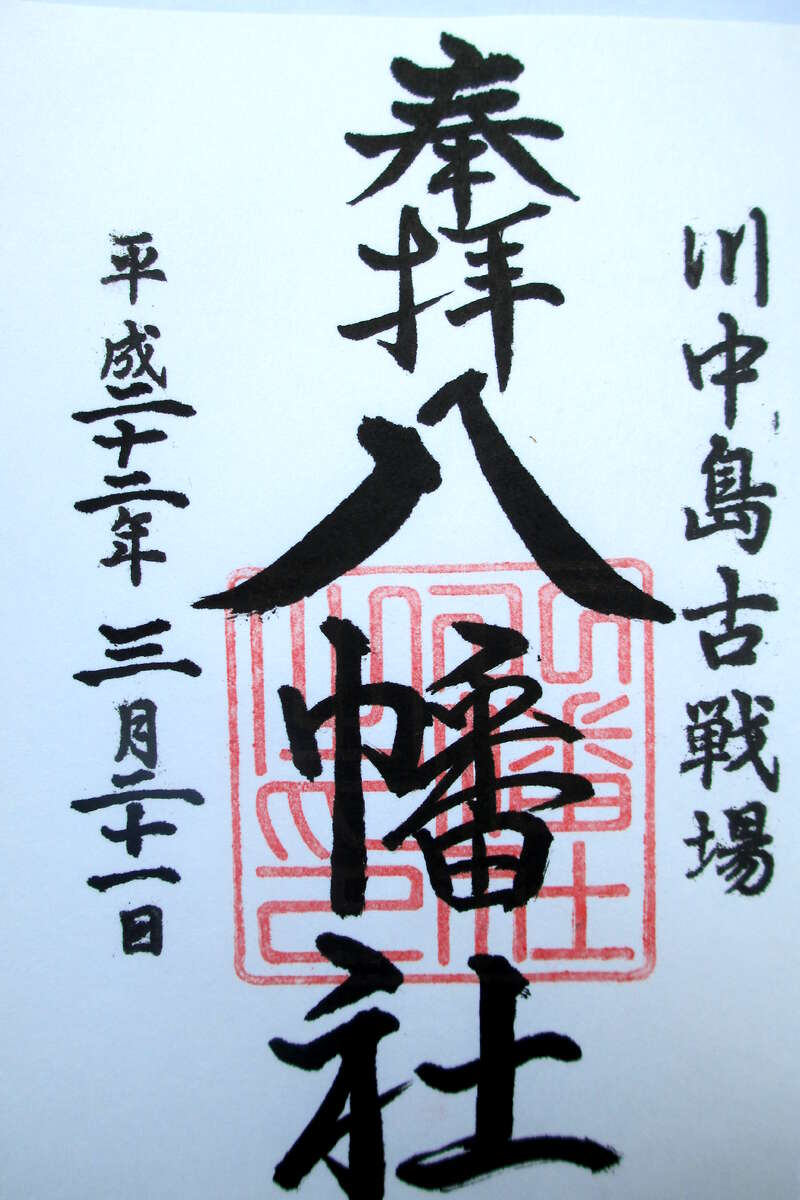 川中島古戦場
奉拝
八幡社
平成二十二年三月二十一日